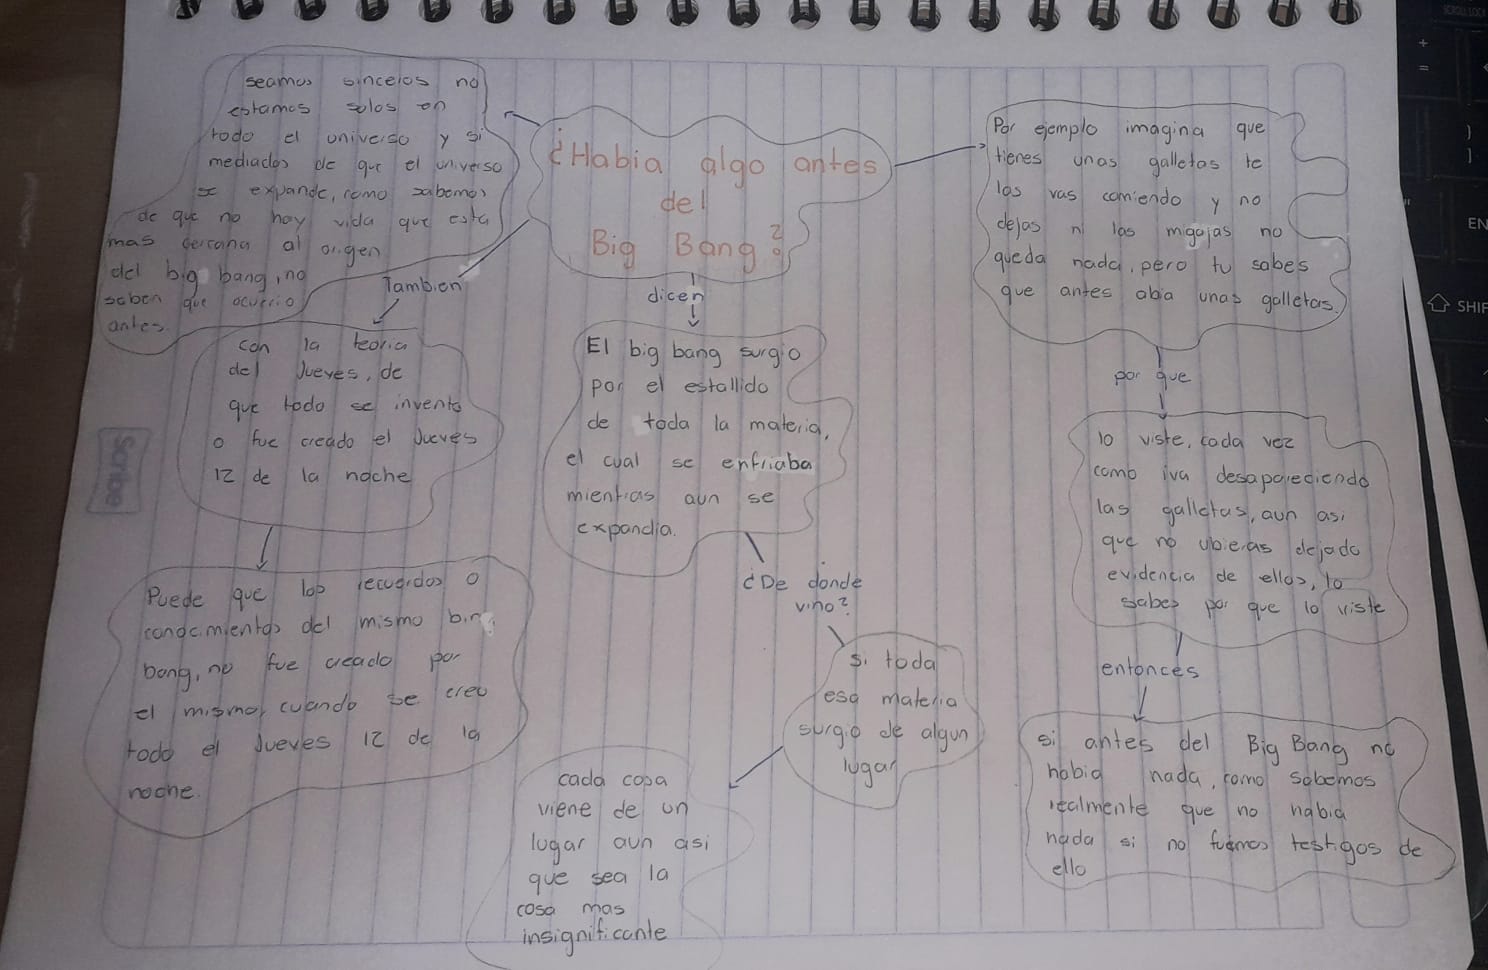 ¿Habia algo antes
del
Big Bang?
seamos sinceros no
estamos solos en
todo el universo y si
mediados de que el universo
se expande, como sabemos
de que no hay vida que esta
mas cercana al origen
del big bang, no
saben que ocurrio
antes.
Tambien
con la teoria
del Jueves, de
que todo se invento
o fue creado el Jueves
12 de la noche
Puede que los recuerdos o
conocimientos del mismo bing
bang, no fue creado por
el mismo, cuando se creo
todo el Jueves 12 de la
noche.
dicen
El big bang surgio
por el estallido
de toda la materia,
el cual se enfriaba
mientras aun se
expandia.
¿De donde
vino?
si toda
esa materia
surgio de algun
lugar
cada cosa
viene de un
lugar aun asi
que sea la
cosa mas
insignificante
Por ejemplo imagina que
tienes unas galletas te
las vas comiendo y no
dejas ni las migajas no
queda nada, pero tu sabes
que antes abia unas galletas.
por que
lo viste, cada vez
como iva desapareciendo
las galletas, aun asi
que no ubieras dejado
evidencia de ellas, lo
sabes por que lo viste
entonces
si antes del Big Bang no
habia nada, como sabemos
realmente que no habia
nada si no fuimos testigos de
ello
Scribe
+
=
)
]
"
EN
SHIF
SCROLL LOCK